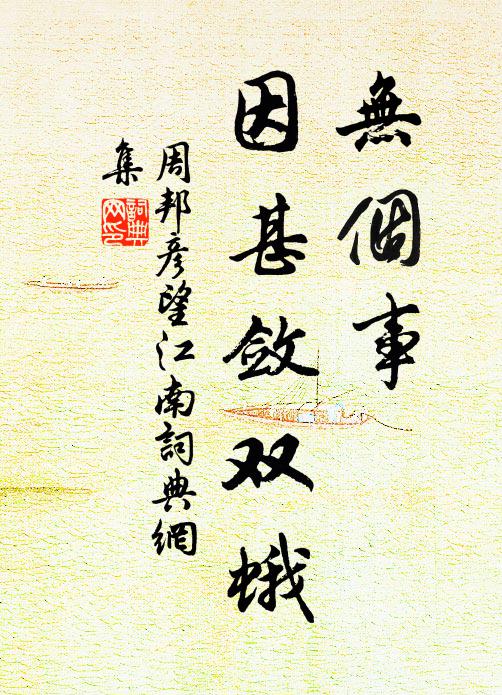 無個事
因甚斂双蛾
周邦彦望江南詞典網
集
詞典
网印